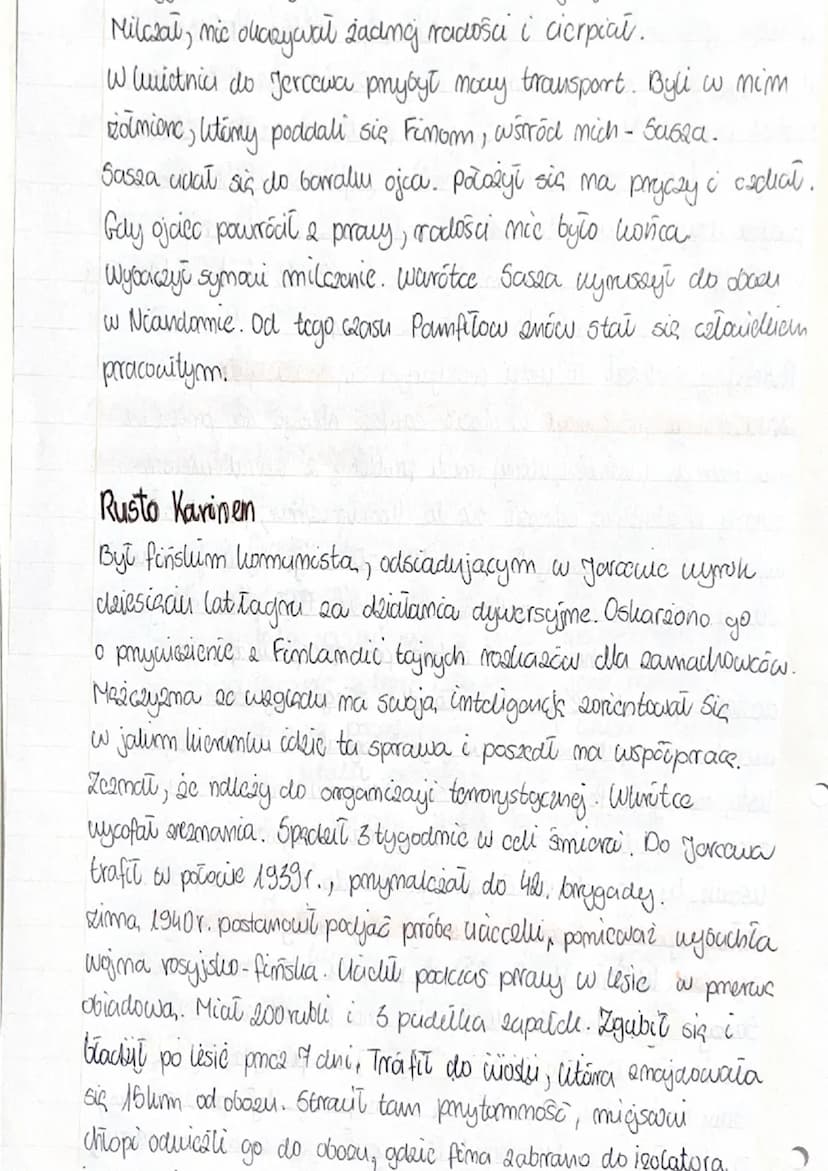 Milczał, nie okazywał żadnej radości i cierpiał.
W kwietniu do Jercewa przybył nowy transport. Byli w nim
żołnierze, którzy poddali się Finom, wśród nich - Sasza.
Sasza udał się do baraku ojca. Położył się na pryczy i czekał.
Gdy ojciec powrócił z pracy, radości nie było końca.
Wybaczył synowi milczenie. Wkrótce Sasza wyruszył do obozu
w Niandomie. Od tego czasu Pamfiłow znów stał się człowiekiem
pracowitym.
Rusto Karinen
Był fińskim komunistą, odsiadującym w Jercewie wyrok
dziesięciu lat łagru za działania dywersyjne. Oskarżono go
o przywiezienie z Finlandii tajnych rozkazów dla zamachowców.
Mężczyzna ze względu na swoją inteligencję zorientował się
w jakim kierunku idzie ta sprawa i poszedł na współpracę.
Zeznał, że należy do organizacji terrorystycznej. Wkrótce
wycofał zeznania. Spędził 3 tygodnie w celi śmierci. Do Jercewa
trafił w połowie 1939r., przynależał do 42. brygady.
Zimą 1940r. postanowił podjąć próbę ucieczki, ponieważ wybuchła
wojna rosyjsko-fińska. Uciekł podczas pracy w lesie w przerwie
obiadową. Miał 200 rubli i 5 pudełka zapałek. Zgubił się i
błądził po lesie przez 7 dni. Trafił do wioski, która znajdowała
się 15km od obozu. Stracił tam przytomność, miejscowi
chłopi odwieźli go do obozu, gdzie Fina zabrano do izolatora.